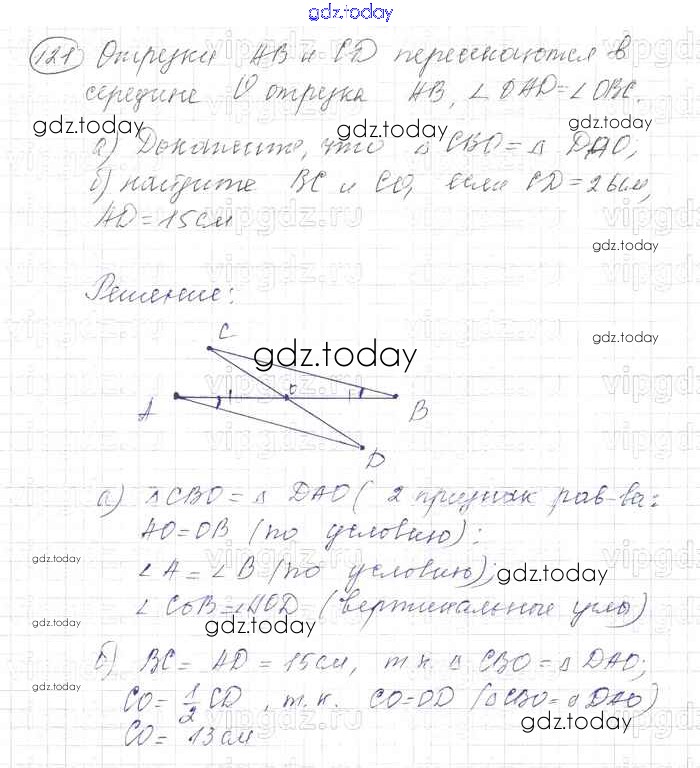 gdz.today
121 Отрезки AB и CD пересекаются в
середине O отрезка AB, ∠OAD=∠OBC.
gdz.today gdz.today gdz.today
а) Докажите, что △CBO=△DAO;
б) найдите BC и CO, если CD=26см,
AD=15см
gdz.today
Решение:
gdz.today
C
gdz.today
A O B
D
а) △CBO=△DAO (2 признак рав-ва:
AO=OB (по условию);
gdz.today
∠A=∠B (по условию);
gdz.today
∠COB=∠AOD (вертикальные углы)
gdz.today gdz.today
б) BC=AD=15см, т.к. △CBO=△DAO;
gdz.today
CO=1/2CD, т.к. CO=OD (△CBO=△DAO)
gdz.today
CO=13см